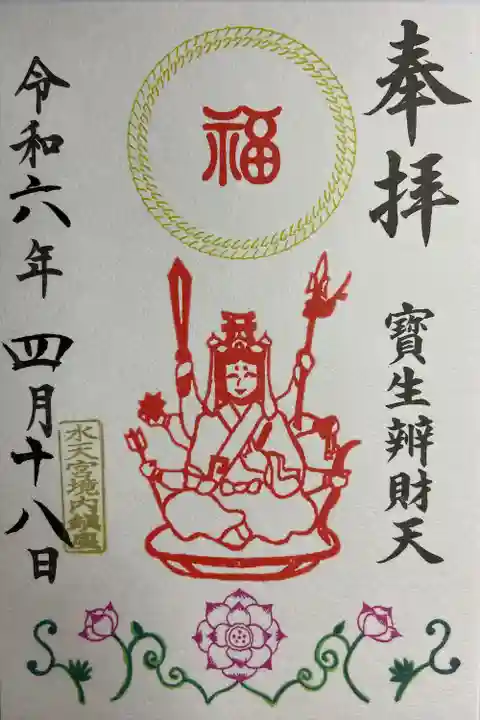 奉拝
寶生辨財天
福
令和六年四月十八日
水天宮境内鎮座